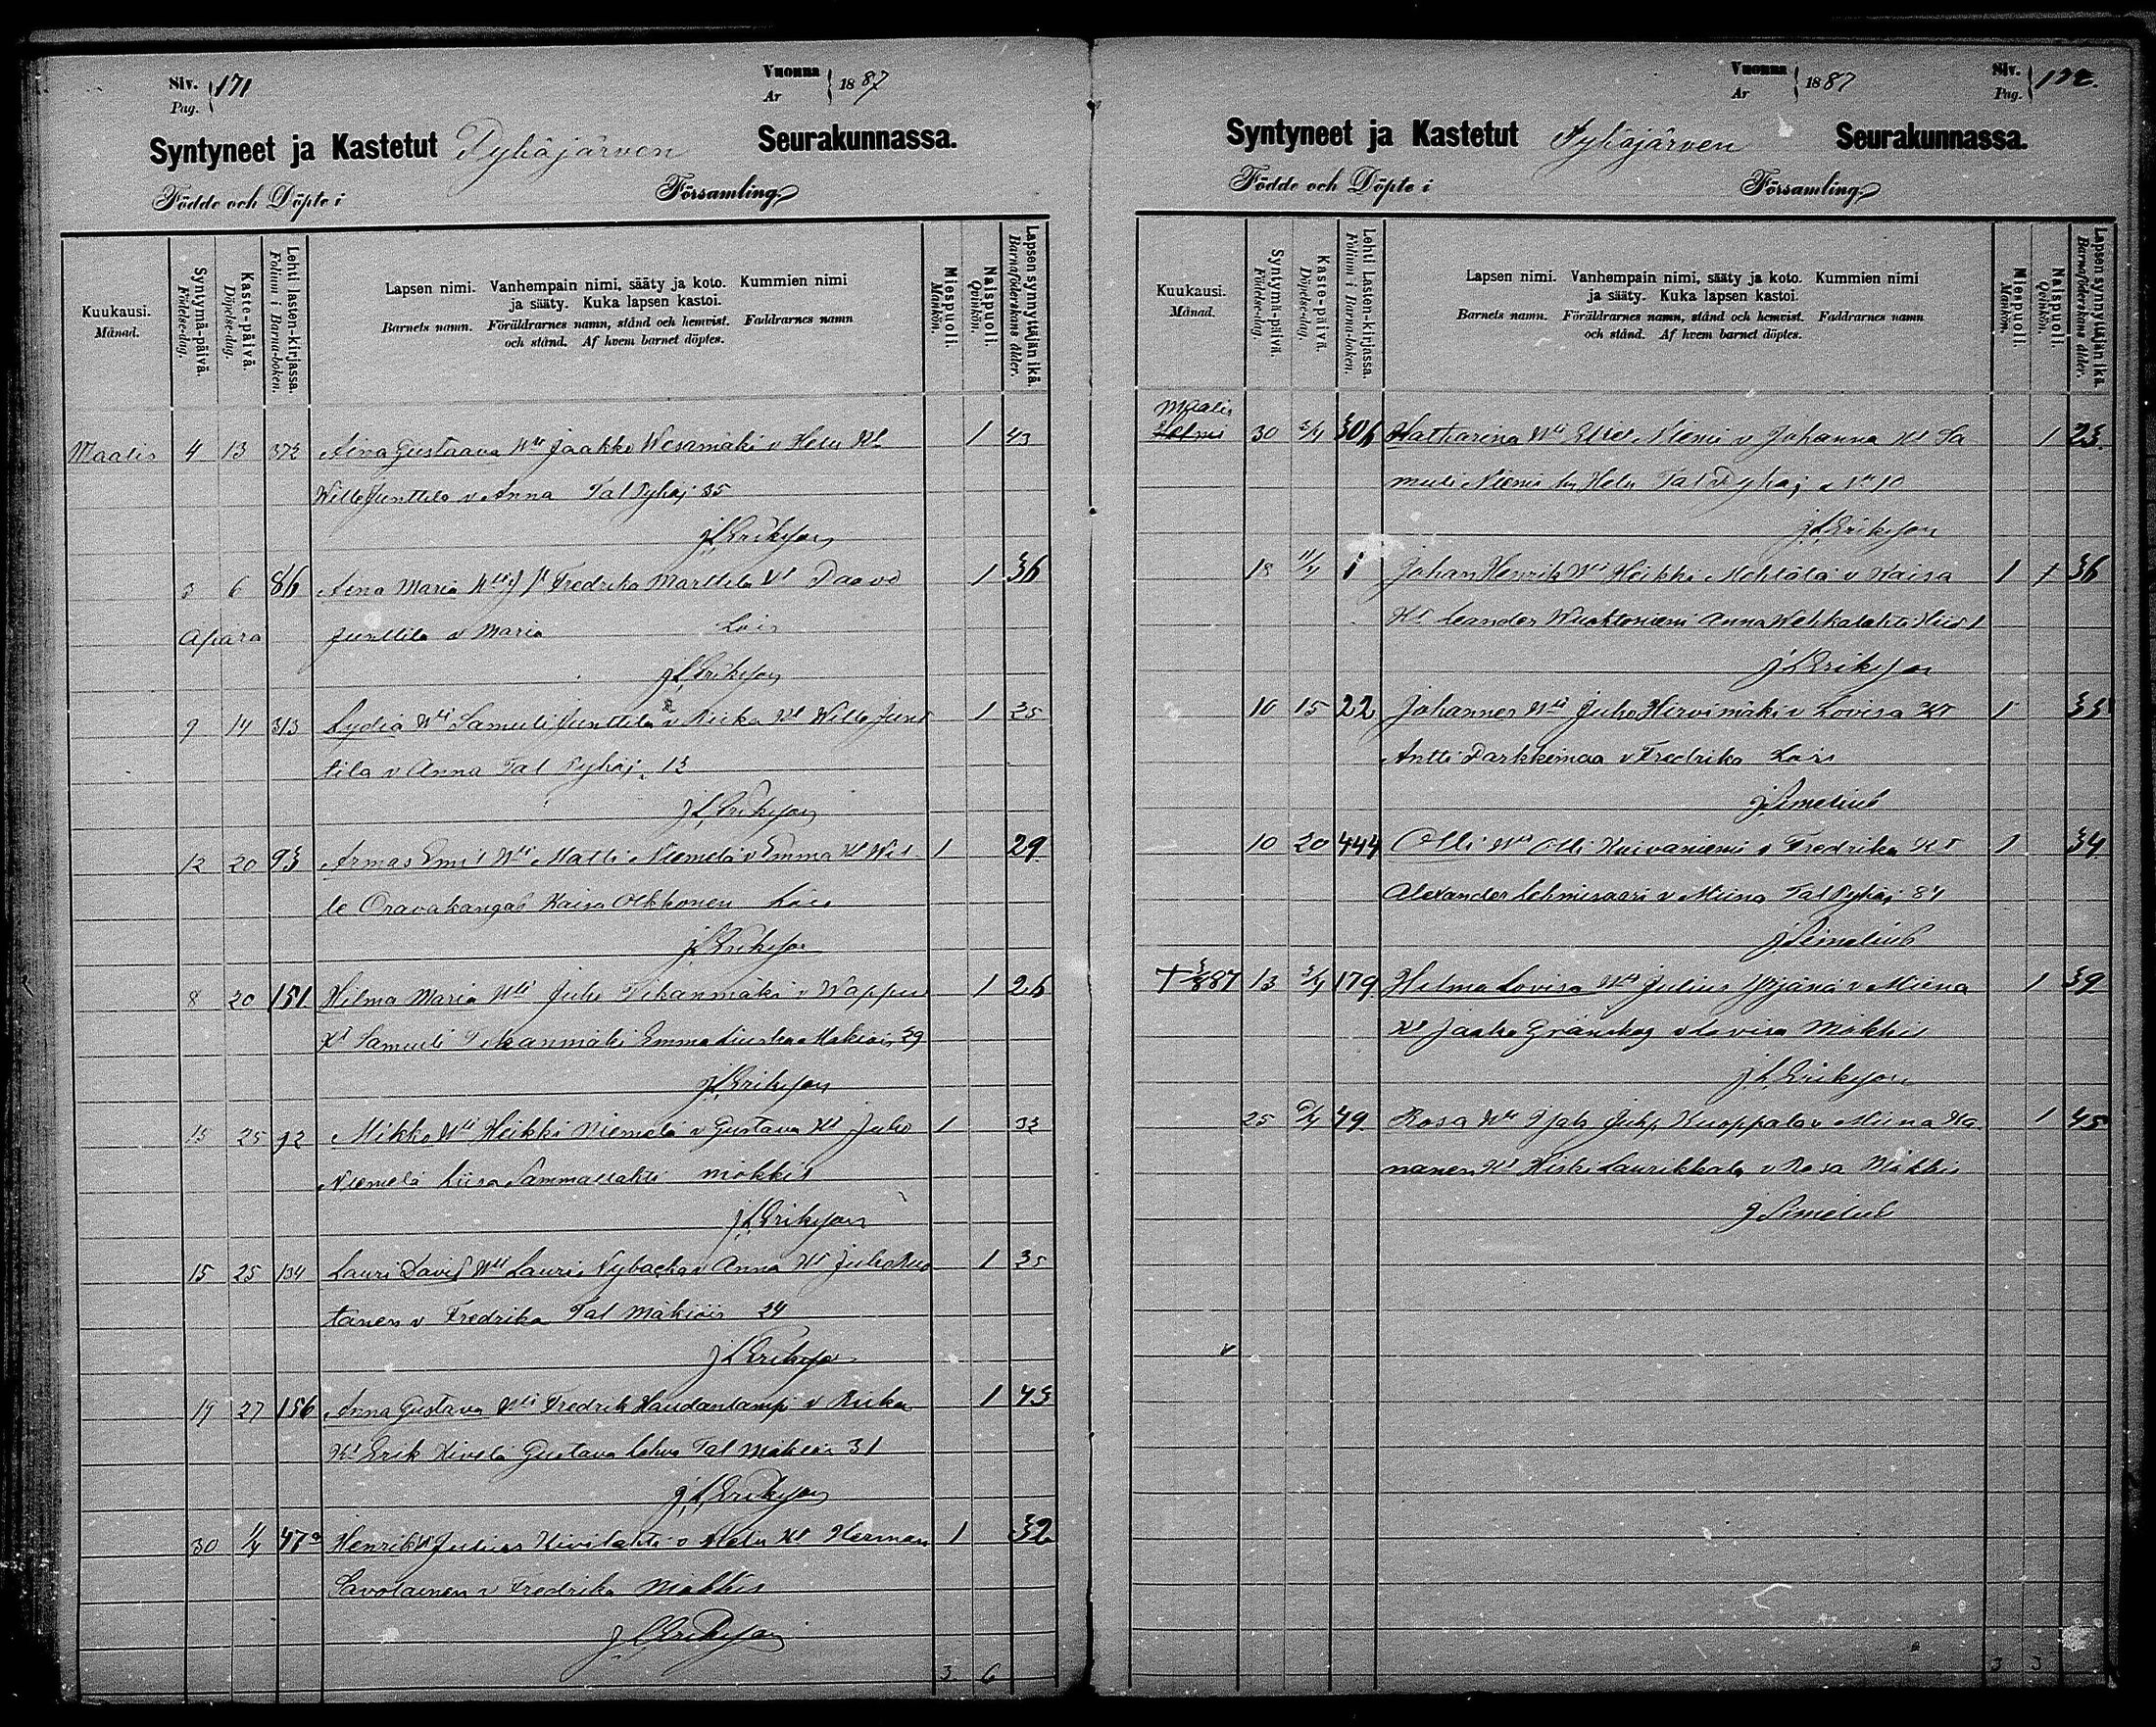 Siv. Pag. 171
Vuonna Ar 1887
Syntyneet ja Kastetut Pyhäjärven Seurakunnassa.
Födde och Döpte i Församling
Kuukausi. Månad.
Syntymä-päivä. Födelse-dag.
Kaste-päivä. Döpelse-dag.
Lehti lasten-kirjassa. Folium i Barna-boken.
Lapsen nimi. Vanhempain nimi, sääty ja koto. Kummien nimi
ja sääty. Kuka lapsen kastoi.
Barnets namn. Föräldrarnes namn, stånd och hemvist. Faddrarnes namn
och stånd. Af hvem barnet döptes.
Miespuoli. Mankön.
Naispuoli. Qvinkön.
Lapsen synnyttäjän ikä. Barnaföderskans ålder.
Maalis 4 13 372 Aina Gustaava Wt Jaakko Wesamäki v Helu Kt 1 43
Wille Junttila v Anna Tal Pyhäj 35
J L Eriksson
3 6 86 Aina Maria Fredrika Marttila Kt Daavi 1 36
Apara Junttila v Maria Lois
J L Eriksson
9 14 313 Lydia Wt Samuli Junttila v Riika Kt Wille Junt 1 25
tila v Anna Tal Pyhäj. 13
J L Eriksson
12 20 93 Armas Emil Wt Matti Niemelä v Emma Kt Wil 1 29
le Oravakangas Kaisa Olkkonen Lois
J L Eriksson
8 20 151 Hilma Maria Wt Juho Tikanmäki v Wappu 1 26
Kt Samuli Tikanmäki Emma Mäkiöis 29
J L Eriksson
15 25 92 Mikko Wt Heikki Niemelä v Gustava Kt Juho 1 32
Niemelä Liisa Sammallahti mökkis
J L Eriksson
15 25 134 Lauri David Wt Lauri Nybacka v Anna Kt Juho Ruo 1 35
tanen v Fredrika Tal Mäkiöis 24
J L Eriksson
19 27 156 Anna Gustava Wt Fredrik Haudanlampi v Riika 1 43
Kt Erik Kivelä Gustava Tal Mäkiöis 31
J L Eriksson
30 1/4 47 Henrik Wt Julius Kivilahti v Helu Kt Herman 1 32
Savolainen v Fredrika Mökkis
J L Eriksson
3 6
Vuonna Ar 1887
Siv. Pag. 172.
Syntyneet ja Kastetut Pyhäjärven Seurakunnassa.
Födde och Döpte i Församling
Kuukausi. Månad.
Syntymä-päivä. Födelse-dag.
Kaste-päivä. Döpelse-dag.
Lehti Lasten-kirjassa. Folium i Barna-boken.
Lapsen nimi. Vanhempain nimi, sääty ja koto. Kummien nimi
ja sääty. Kuka lapsen kastoi.
Barnets namn. Föräldrarnes namn, stånd och hemvist. Faddrarnes namn
och stånd. Af hvem barnet döptes.
Miespuoli. Mankön.
Naispuoli. Qvinkön.
Lapsen synnyttäjän ikä. Barnaföderskans ålder.
Maalis
Helmi 30 3/4 306 Katharina Wt Niemi v Johanna Kt Sa 1 23
muli Niemi Helu Tal Pyhäj No 10
J L Eriksson
18 11/4 1 Johan Henrik Wt Heikki Mehtälä v Kaisa 1 1 36
Kt Leander Wuohtoniemi Anna Wehkalahti
J L Eriksson
10 15 22 Johannes Wt Juho Hirvimäki v Lovisa Kt 1 33
Antti Parkkimaa v Fredrika Lois
J Simelius
10 20 444 Olli Wt Olli Kuivaniemi v Fredrika Kt 1 34
Alexander Lehmisaari v Miina Tal Pyhäj 84
J Simelius
13 3/4 179 Hilma Lovisa Wt Julius Yrjänä v Miina 1 39
Kt Jaako Gränskog v Lovisa Mökkis
J L Eriksson
25 49 Rosa Wt Juho Kuoppala v Miina Ha 1 45
nanen Kt Heikki Laurikkala v Rosa Mökkis
J Simelius
3 3